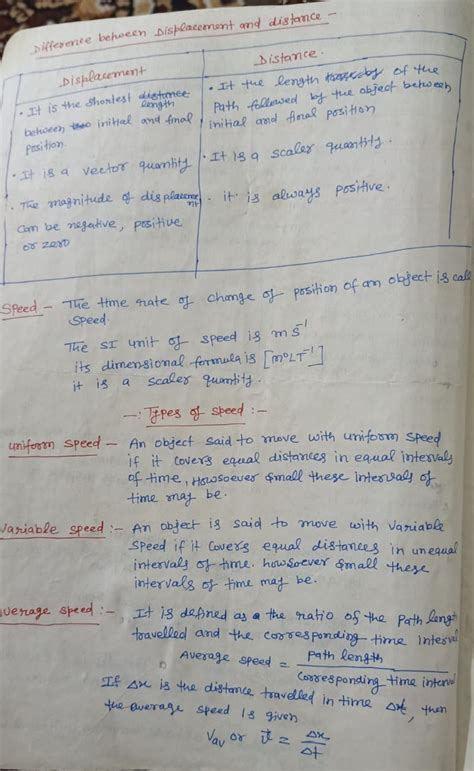 Difference between Displacement and distance -
Displacement
• It is the shortest distance length
between two initial and final
position.
• It is a vector quantity
• The magnitude of displacement
can be negative, positive
or zero
Distance.
• It the length of the
Path followed by the object between
initial and final position
• It is a scaler quantity.
• it is always positive.
Speed - The time rate of change of position of an object is call
speed.
The SI unit of speed is m s⁻¹
its dimensional formula is [M⁰LT⁻¹]
it is a scaler quantity.
-: Types of speed :-
uniform speed - An object said to move with uniform speed
if it covers equal distances in equal intervals
of time, Howsoever small these intervals of
time may be.
variable speed :- An object is said to move with variable
speed if it covers equal distances in unequal
intervals of time. howsoever small these
intervals of time may be.
average speed :- It is defined as the ratio of the path length
travelled and the corresponding time interval
Average speed = Path length / Corresponding time interval
If Δx is the distance travelled in time Δt, then
the average speed is given
Vav or v̄ = Δx / Δt